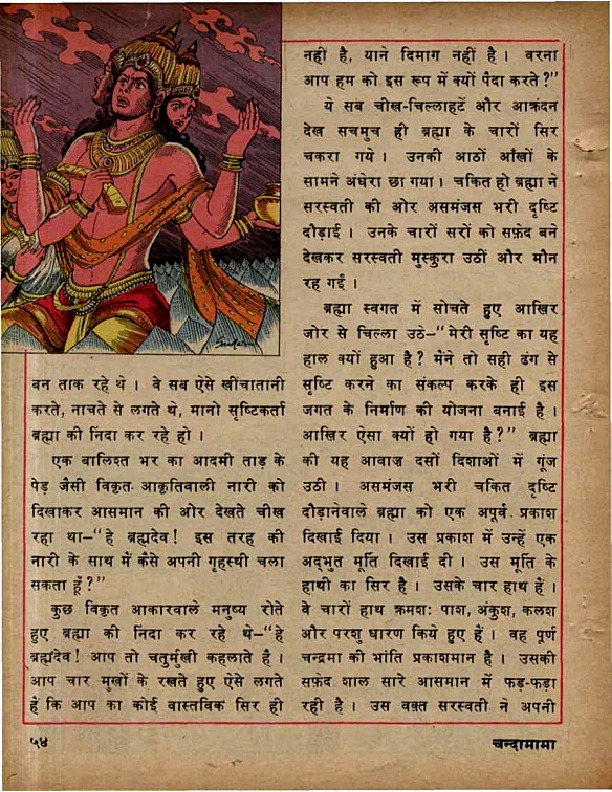 बन ताक रहे थे । वे सब ऐसे खींचातानी
करते, नाचते से लगते थे, मानो सृष्टिकर्ता
ब्रह्मा की निंदा कर रहे हो ।
एक बालिश्त भर का आदमी ताड़ के
पेड़ जैसी विकृत आकृतिवाली नारी को
दिखाकर आसमान की ओर देखते चीख
रहा था–“हे ब्रह्मदेव! इस तरह की
नारी के साथ में कैसे अपनी गृहस्थी चला
सकता हूँ?”
कुछ विकृत आकारवाले मनुष्य रोते
हुए ब्रह्मा की निंदा कर रहे थे–“हे
ब्रह्मदेव! आप तो चतुर्मुखी कहलाते है ।
आप चार मुखों के रखते हुए ऐसे लगते
हैं कि आप का कोई वास्तविक सिर ही
नहीं है, याने दिमाग नहीं है । वरना
आप हम को इस रूप में क्यों पैदा करते?”
ये सब चीख-चिल्लाहटें और आक्रंदन
देख सचमुच ही ब्रह्मा के चारों सिर
चकरा गये । उनकी आठों आँखों के
सामने अंधेरा छा गया । चकित हो ब्रह्मा ने
सरस्वती की ओर असमंजस भरी दृष्टि
दौड़ाई । उनके चारों सरों को सफ़ेद बने
देखकर सरस्वती मुस्कुरा उठीं और मौन
रह गईं ।
ब्रह्मा स्वगत में सोचते हुए आखिर
जोर से चिल्ला उठे–“मेरी सृष्टि का यह
हाल क्यों हुआ है? मैंने तो सही ढंग से
सृष्टि करने का संकल्प करके ही इस
जगत के निर्माण की योजना बनाई है ।
आखिर ऐसा क्यों हो गया है?” ब्रह्मा
की यह आवाज दसों दिशाओं में गूंज
उठी । असमंजस भरी चकित दृष्टि
दौड़ानेवाले ब्रह्मा को एक अपूर्व प्रकाश
दिखाई दिया । उस प्रकाश में उन्हें एक
अद्भुत मूर्ति दिखाई दी । उस मूर्ति के
हाथी का सिर है । उसके चार हाथ हैं ।
वे चारों हाथ क्रमशः पाश, अंकुश, कलश
और परशु धारण किये हुए हैं । वह पूर्ण
चन्द्रमा की भांति प्रकाशमान है । उसकी
सफ़ेद शाल सारे आसमान में फड़-फड़ा
रही है । उस वक़्त सरस्वती ने अपनी
५४
चन्दामामा